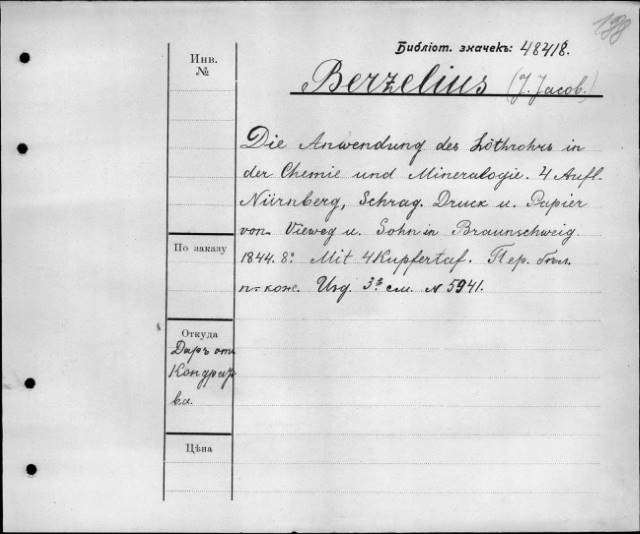 138
Библіот. значекъ: 48418.
Инв.
№
Berzelius (J. Jacob.)
Die Anwendung des Löthrohrs in
der Chemie und Mineralogie. 4 Aufl.
Nürnberg, Schrag. Druck u. Papier
von Vieweg u. Sohn in Braunschweig
1844. 8º. Mit 4 Kupfertaf. Пер.
п.-кож. см. № 5941.
По заказу
Откуда
Даръ отъ
Цѣна